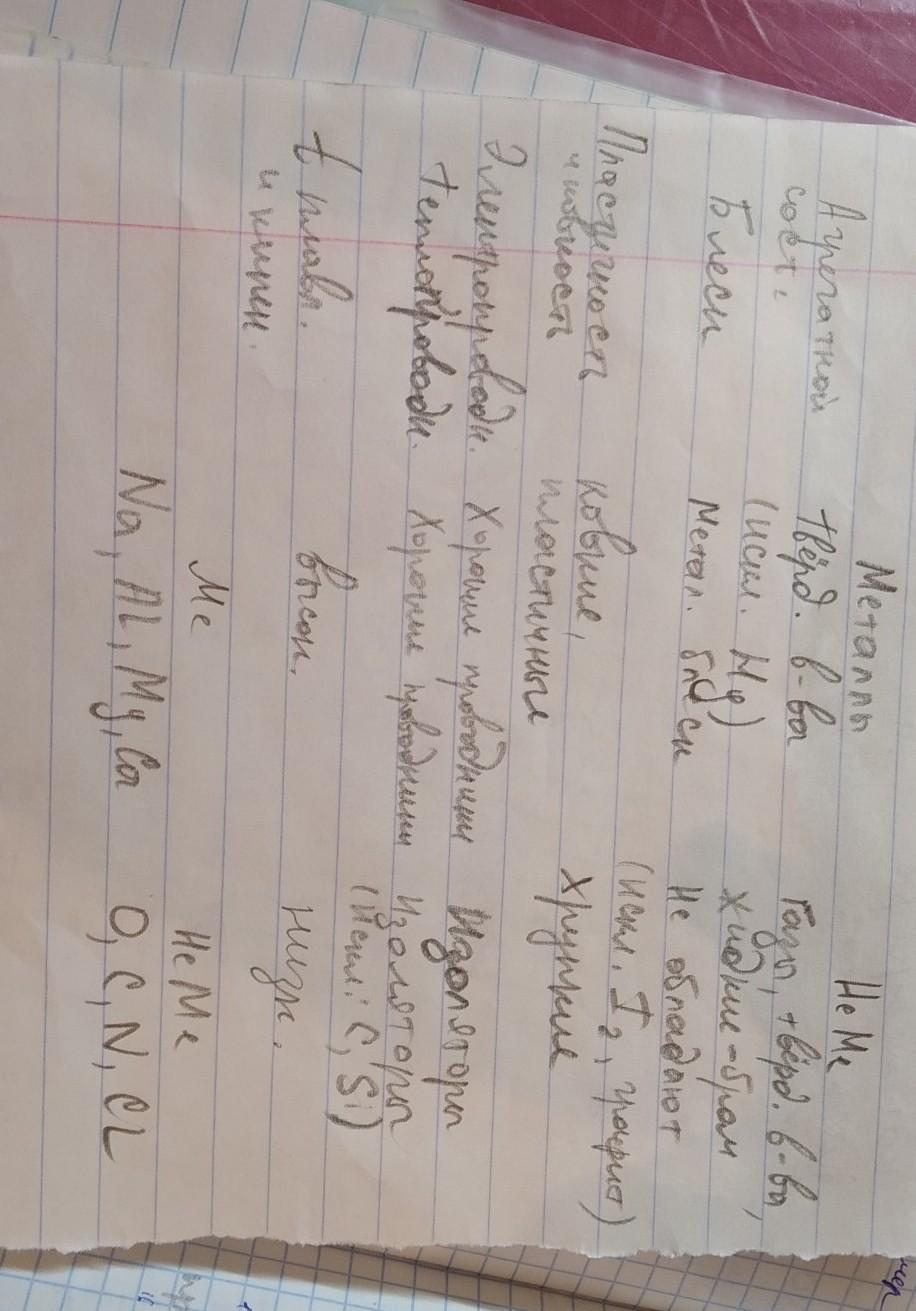 Металлы НеМе
Агрегатной твёрд. в-ва Газы, твёрд. в-ва,
сост. (искл. Hg) жидкие - бром
Блеск Метал. блеск Не обладают
(искл. I2, графит)
Пластичность ковкие, хрупкие
и ковкость пластичные
Электропроводн. Хорошие проводники Изоляторы
теплопроводн. Хорошие проводники Изоляторы
(искл: C, Si)
t плавл. высок. низк.
и кипен.
Me НеМе
Na, Al, Mg, Ca O, C, N, Cl